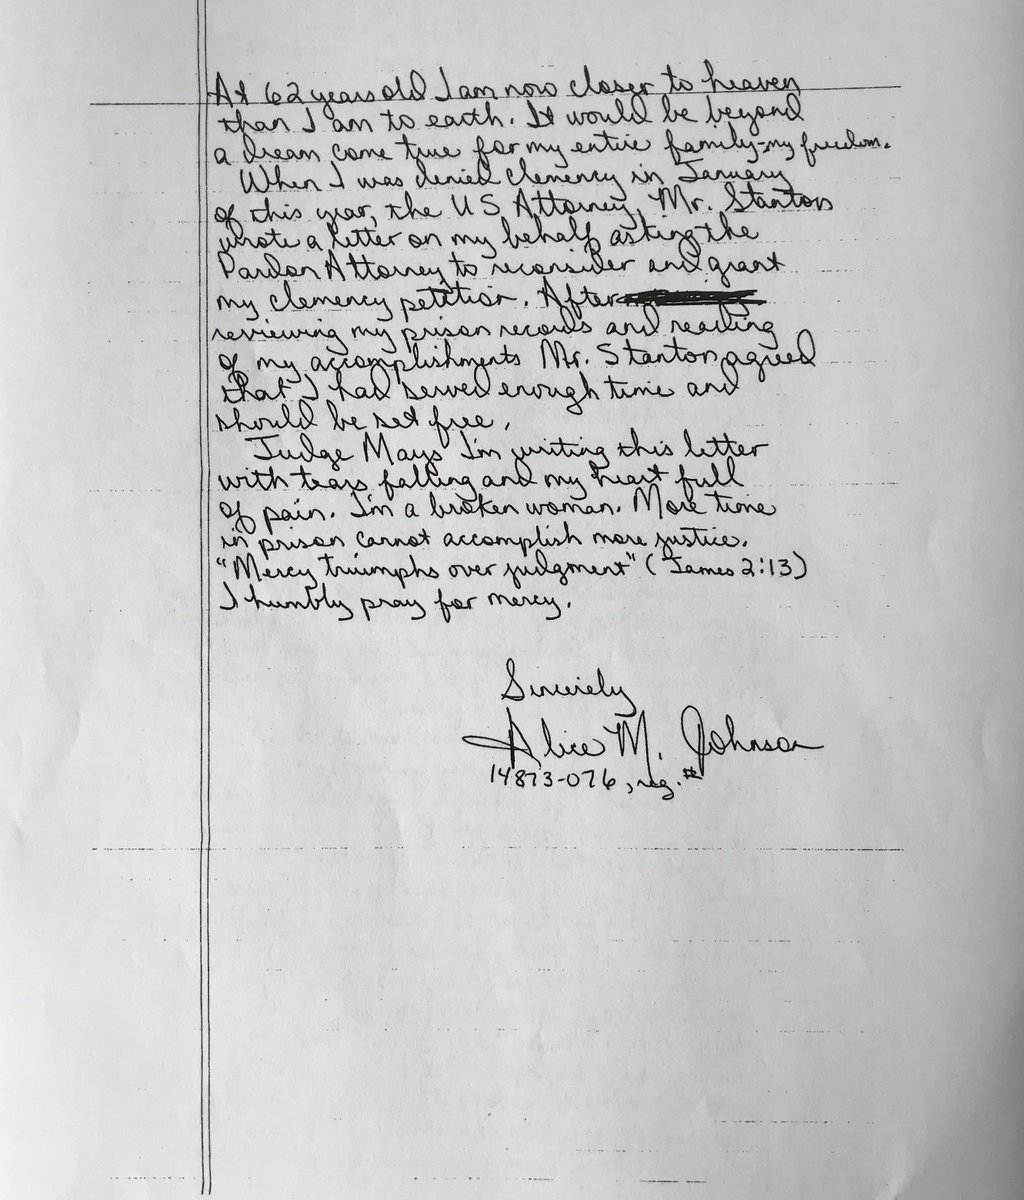 At 62 years old I am now closer to heaven
than I am to earth. It would be beyond
a dream come true for my entire family-my freedom.
When I was denied clemency in January
of this year, the US Attorney, Mr. Stanton
wrote a letter on my behalf asking the
Pardon Attorney to reconsider and grant
my clemency petition. After
reviewing my prison records and reading
of my accomplishments Mr. Stanton agreed
that I had served enough time and
should be set free.
Judge Mays I'm writing this letter
with tears falling and my heart full
of pain. I'm a broken woman. More time
in prison cannot accomplish more justice.
"Mercy triumphs over judgment" (James 2:13)
I humbly pray for mercy.
Sincerely
Alice M. Johnson
14873-076, reg. #